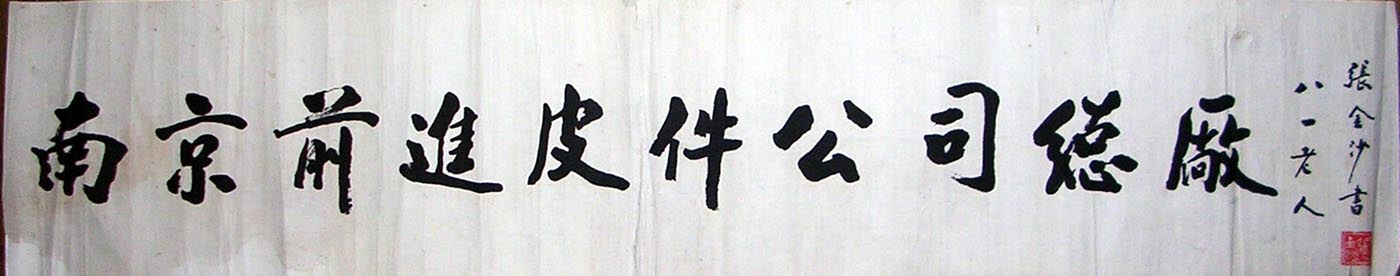 南京前進皮件公司總廠
八一老人
張金沙書